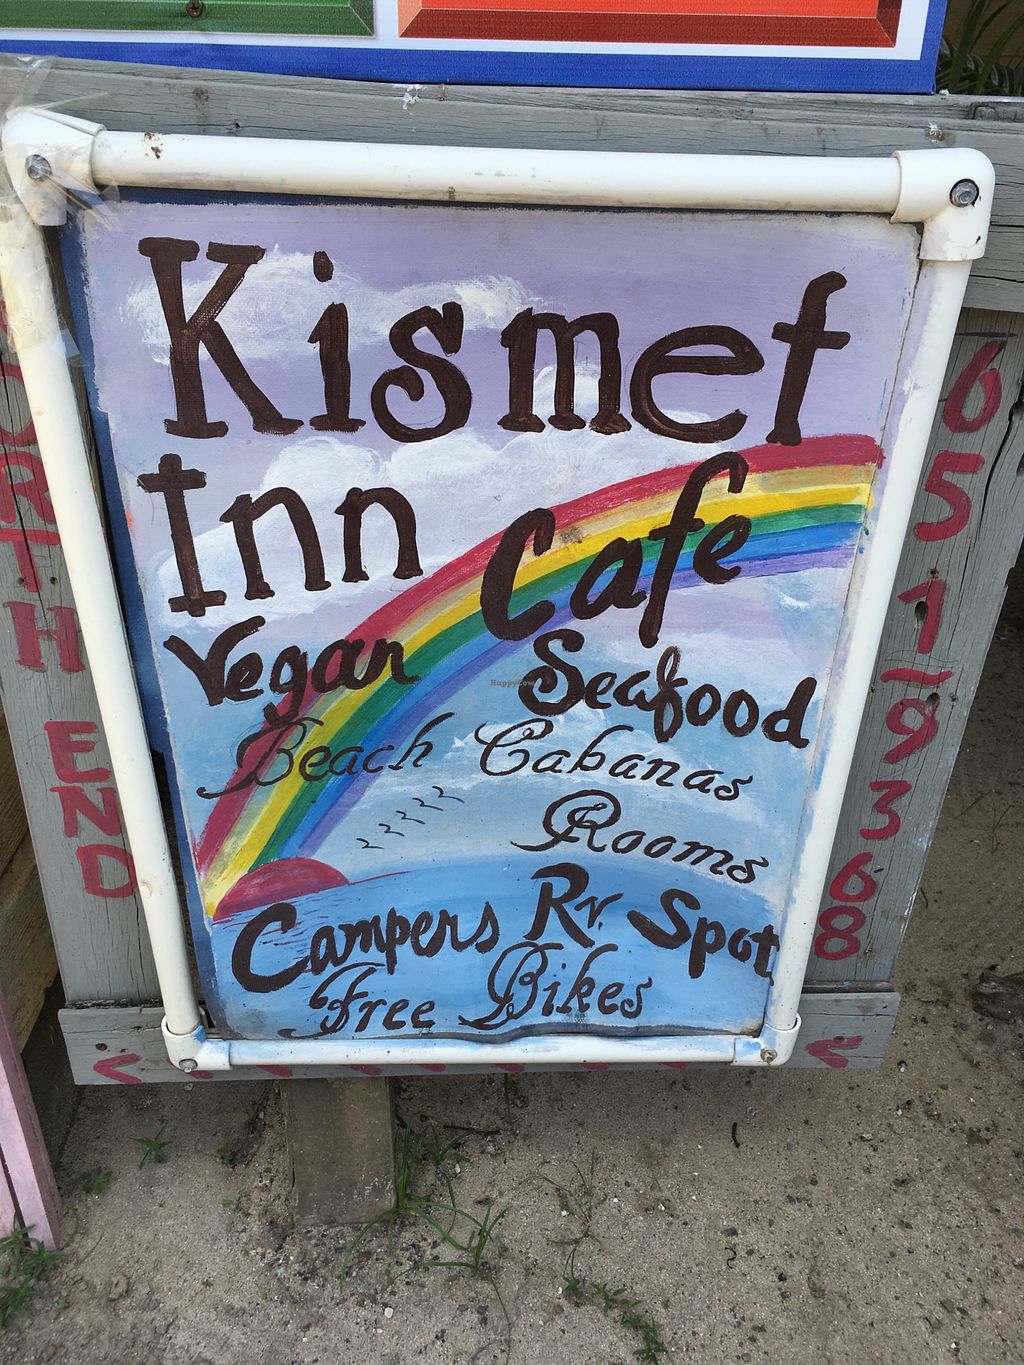 Kismet
Inn Cafe
Vegan Seafood
Beach Cabanas
Rooms
Campers Rv Spot
Free Bikes
NORTH END
651-9368
HappyCow